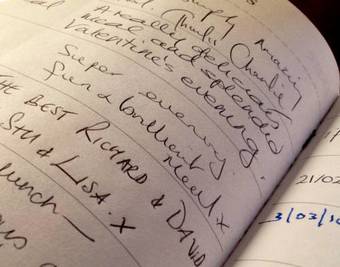 Simply Amazing
Charlie Charlie
A really delicious
meal and splendid
Valentine's evening.
Super evening.
fun & brilliant
Meal x
THE BEST RICHARD & DAVID
STU & LISA. x
lunch —
21/02
3/03/10